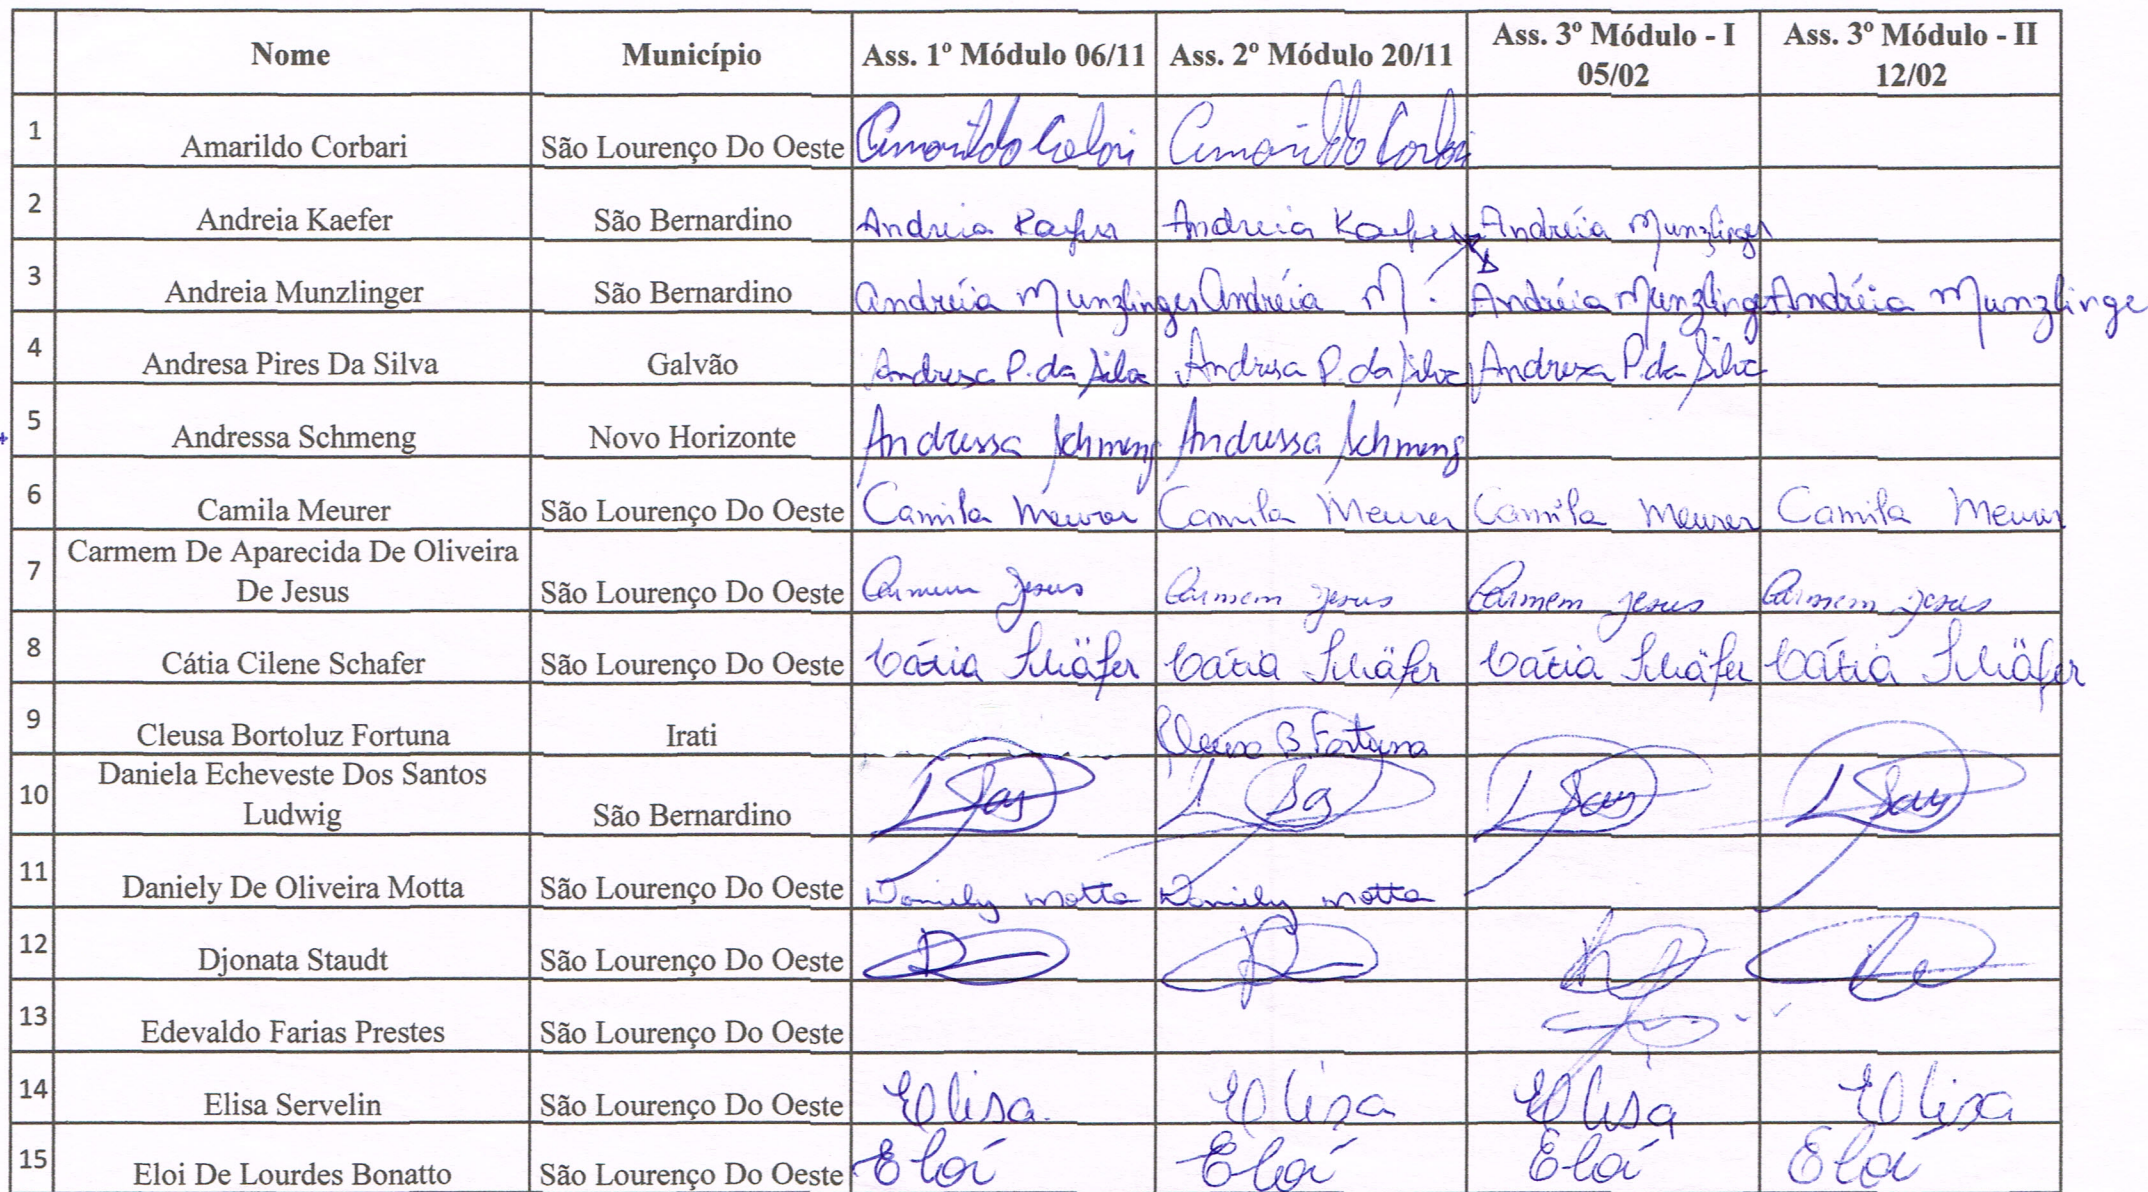 Nome Município Ass. 1º Módulo 06/11 Ass. 2º Módulo 20/11 Ass. 3º Módulo - I 05/02 Ass. 3º Módulo - II 12/02
1 Amarildo Corbari São Lourenço Do Oeste Amarildo Corbari Amarildo Corbari
2 Andreia Kaefer São Bernardino Andreia Kaefer Andreia Kaefer Andréia Munzlinger
3 Andreia Munzlinger São Bernardino Andréia Munzlinger Andréia M. Andréia Munzlinger Andréia Munzlinge
4 Andresa Pires Da Silva Galvão Andresa P. da Silva Andresa P. da Silva Andresa P. da Silva
5 Andressa Schmeng Novo Horizonte Andressa Schmeng Andressa Schmeng
6 Camila Meurer São Lourenço Do Oeste Camila Meurer Camila Meurer Camila Meurer Camila Meurer
7 Carmem De Aparecida De Oliveira
De Jesus São Lourenço Do Oeste Carmem Jesus Carmem Jesus Carmem Jesus Carmem Jesus
8 Cátia Cilene Schafer São Lourenço Do Oeste Cátia Schäfer Cátia Schäfer Cátia Schäfer Cátia Schäfer
9 Cleusa Bortoluz Fortuna Irati Cleusa B. Fortuna
10 Daniela Echeveste Dos Santos
Ludwig São Bernardino
11 Daniely De Oliveira Motta São Lourenço Do Oeste Daniely Motta Daniely Motta
12 Djonata Staudt São Lourenço Do Oeste
13 Edevaldo Farias Prestes São Lourenço Do Oeste
14 Elisa Servelin São Lourenço Do Oeste Elisa. Elisa Elisa Elisa
15 Eloi De Lourdes Bonatto São Lourenço Do Oeste Eloí Eloí Eloí Eloí